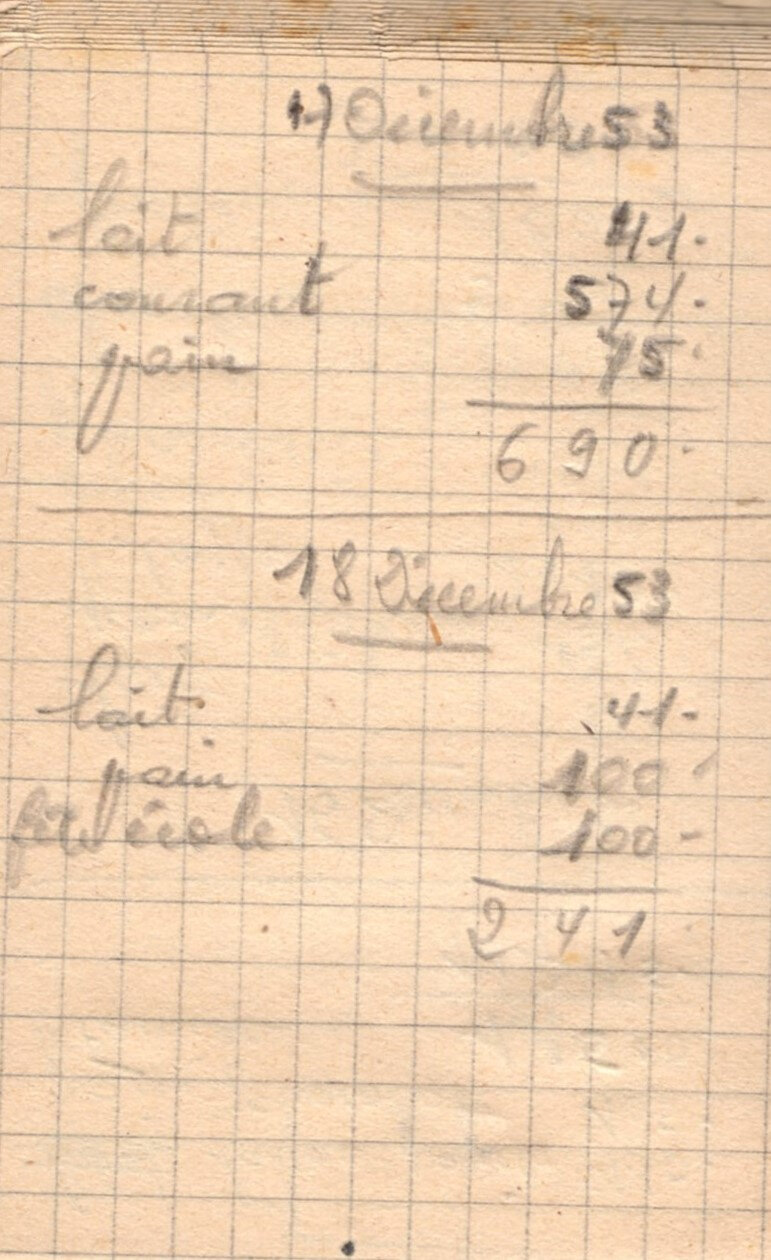 17 Décembre 53
lait 41.
courant 574.
pain 75.
690.
18 Décembre 53
lait 41-
pain 100
école 100-
241